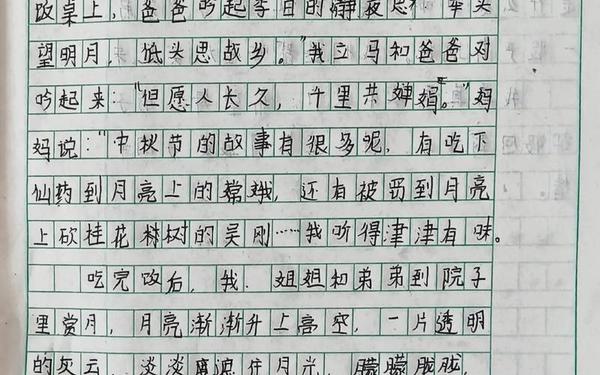 饭桌上，爸爸吟起李白的静夜思“举头
望明月，低头思故乡。”我立马和爸爸对
吟起来：“但愿人长久，千里共婵娟。”妈
妈说：“中秋节的故事有很多呢，有吃下
仙药到月亮上的嫦娥，还有被罚到月亮
上砍桂花树的吴刚……我听得津津有味。
吃完饭后，我、姐姐和弟弟到院子
里赏月，月亮渐渐升上高空，一片透明
的灰云，淡淡遮住月光，朦朦胧胧，